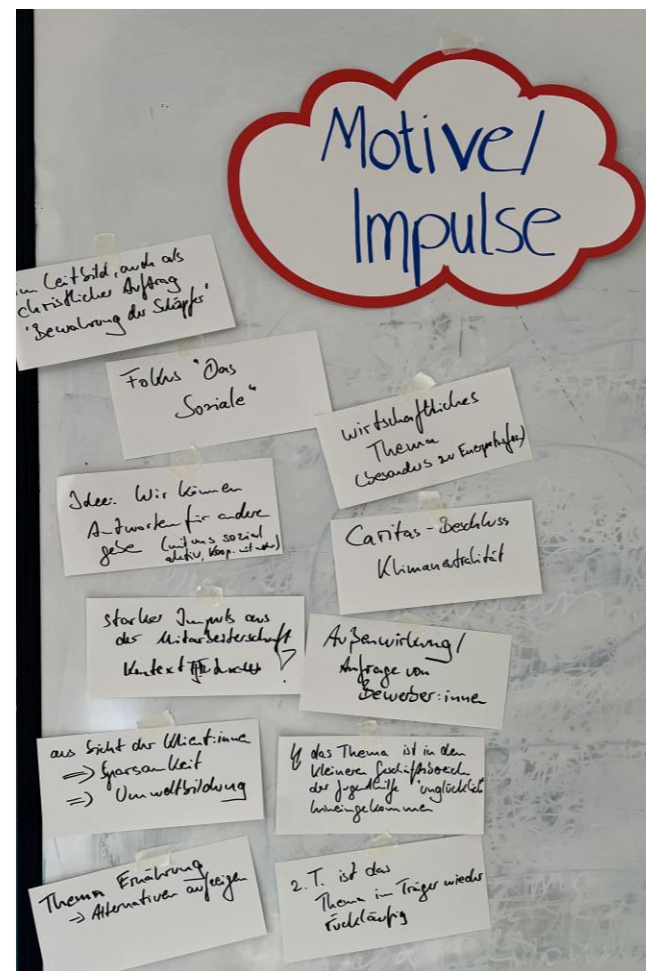 Motive/
Impulse
im Leitbild, auch als
christlicher Auftrag
"Bewahrung der Schöpfer"
Fokus "Das
Soziale"
wirtschaftliches
Thema
(besonders zu
Idee: Wir können
Antworten für andere
gebe (mit uns sozial
aktiv, Koop.
Caritas-Beschluss
Klimaneutralität
starker Impuls aus
der Mitarbeiterschaft
Kontext
Außenwirkung/
Anfrage von
Bewerber:innen
aus Sicht der Klient:inne
=> Sparsamkeit
=> Umweltbildung
das Thema ist in den
kleineren Geschäftsbereich
der Jugendhilfe "unglücklich"
hineingekommen
Thema Ernährung
-> Alternativen aufzeigen
z. T. ist das
Thema im Träger wieder
rückläufig